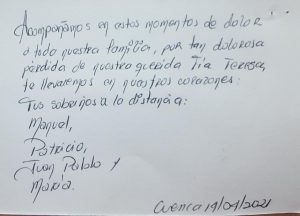 Acompañamos en estos momentos de dolor
a toda nuestra familia, por tan dolorosa
pérdida de nuestra querida Tía Teresa,
te llevaremos en nuestros corazones:
Tus sobrinos a la distancia:
Manuel,
Patricio,
Juan Pablo y
María.
Cuenca 19/04/2021